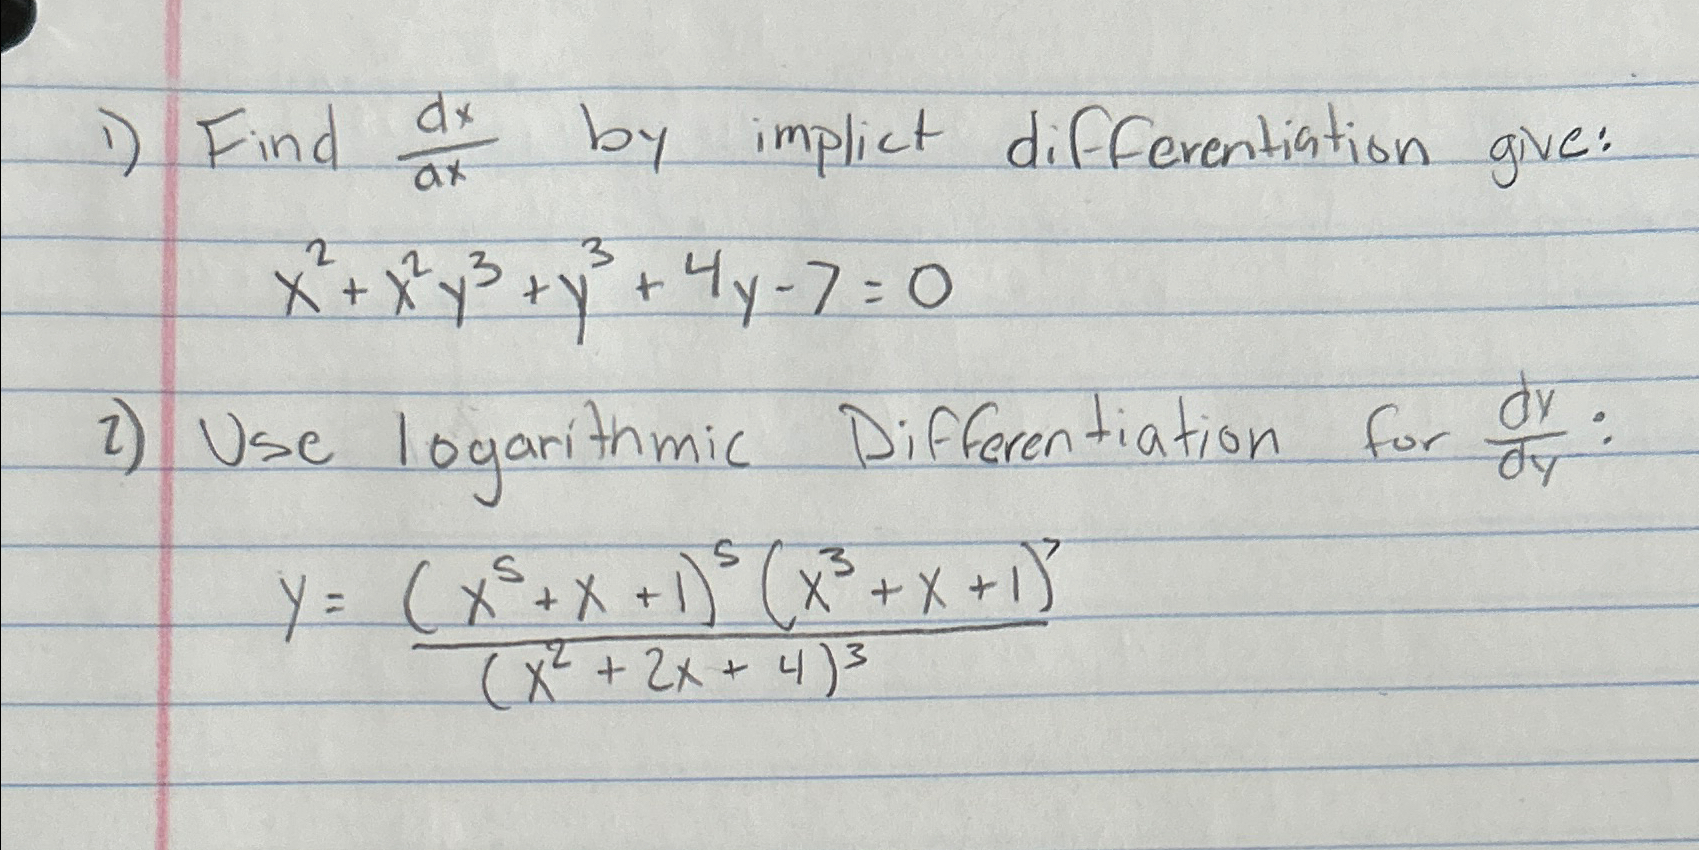 1) Find dx/ax by implict differentiation give:
x² + x²y³ + y³ + 4y - 7 = 0
2) Use logarithmic Differentiation for dy/dy:
y = (x⁵ + x + 1)⁵ (x³ + x + 1)⁷
(x² + 2x + 4)³